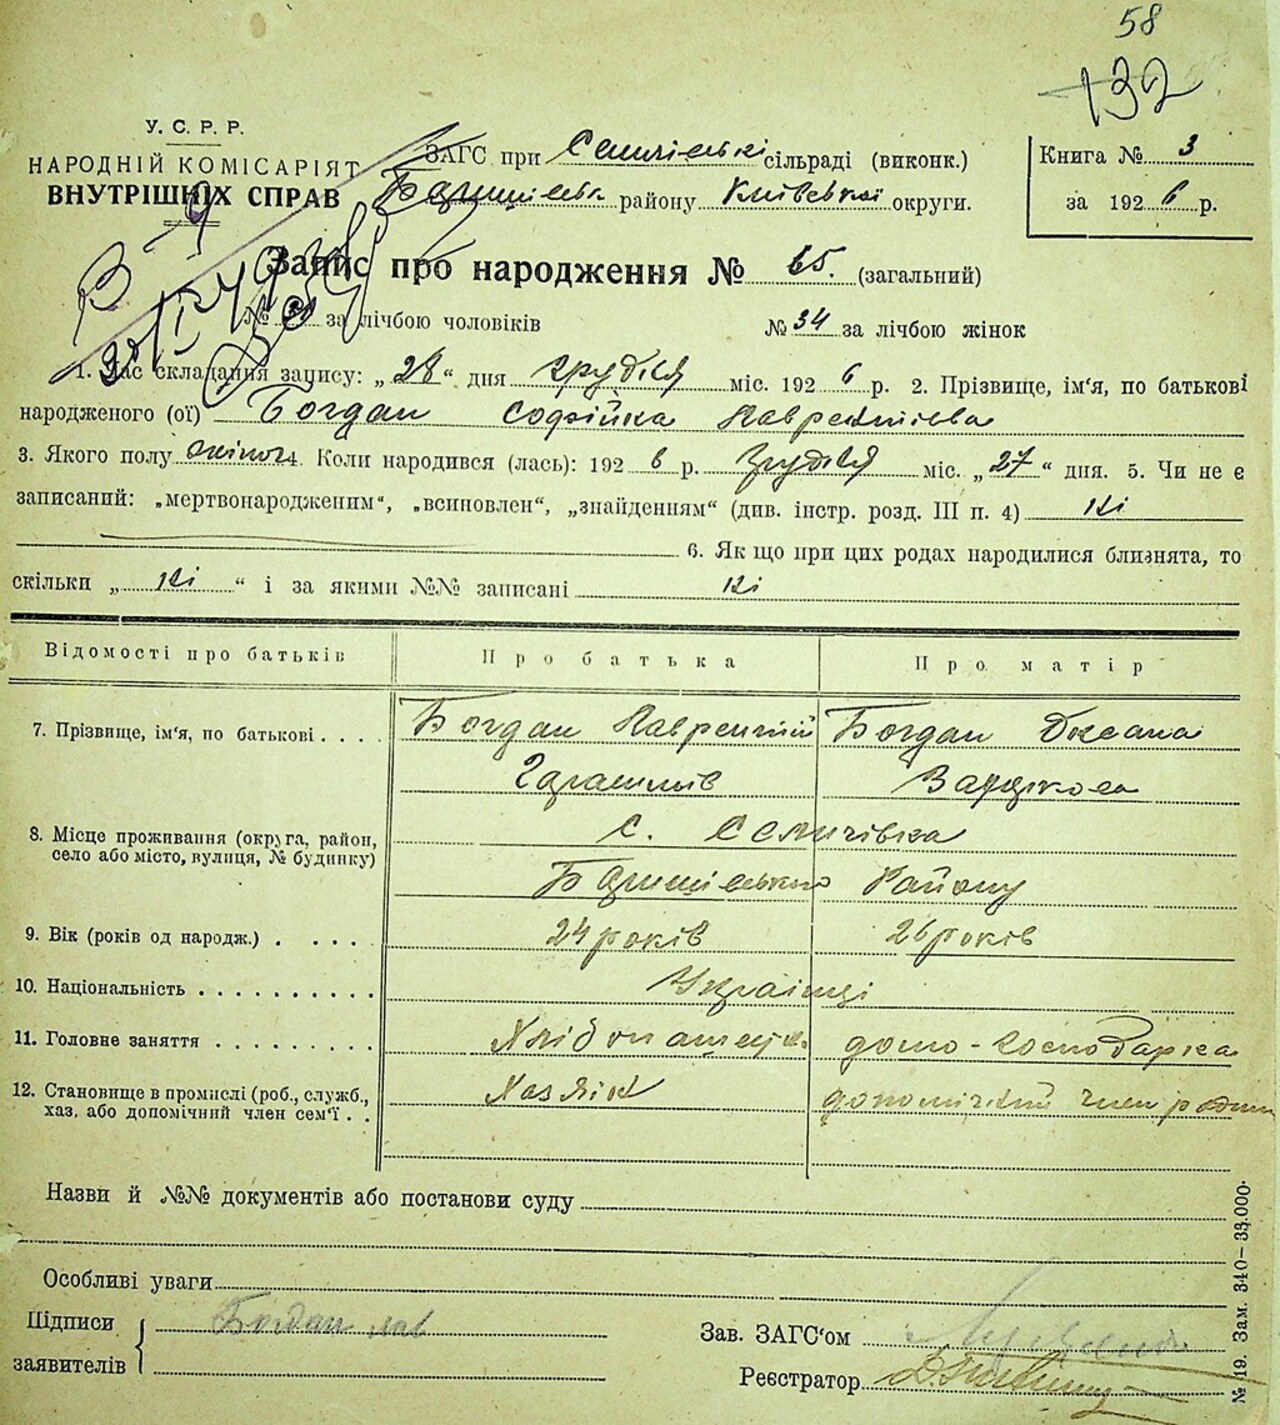 58
132
У. С. Р. Р.
НАРОДНІЙ КОМІСАРІЯТ
ВНУТРІШНІХ СПРАВ
ЗАГС при Селичівській сільраді (виконк.)
Баришівськ району Київської округи.
Книга № 3
за 1926 р.
Запис про народження № 65. (загальний)
№ 31 за лічбою чоловіків
№ 34 за лічбою жінок
1. Час складання запису: „28“ дня грудня міс. 1926 р. 2. Прізвище, ім'я, по батькові
народженого (ої) Богдан Софійка Лаврентієва
3. Якого полу жіноч 4. Коли народився (лась): 1926 р. грудня міс. „27“ дня. 5. Чи не є
записаний: „мертвонародженим“, „всиновлен“, „знайденням“ (див. інстр. розд. III п. 4) Ні
6. Як що при цих родах народилися близнята, то
скільки „Ні“ і за якими №№ записані Ні
Відомості про батьків
Про батька
Про матір
7. Прізвище, ім'я, по батькові . . . .
Богдан Лаврентій
Богдан Оксана
8. Місце проживання (округа, район,
село або місто, вулиця, № будинку)
с. Селичівка
Баришівського Району
9. Вік (років од народж.) . . . . .
24 років
26 років
10. Національність . . . . . . . . . .
Українці
11. Головне заняття . . . . . . . . .
Хлібопашец.
домо-господарка
12. Становище в промислі (роб., служб.,
хаз. або допомічний член сем'ї . .
Хазяін
допомічний член родини
Назви й №№ документів або постанови суду
Особливі уваги
Підписи
заявителів
Богдан Лав
Зав. ЗАГС'ом
Реєстратор
№ 19. Зам. 340—33.000.